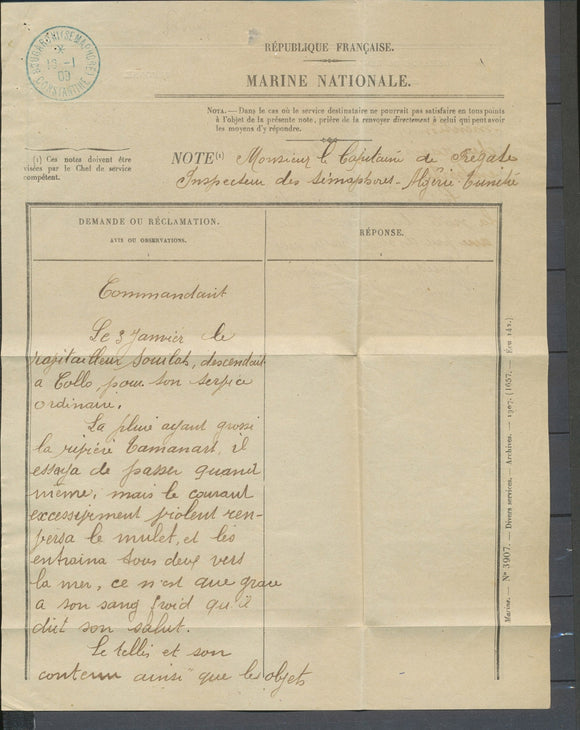 BOUGARONI (SEMAPHORE)
*
13 -1
09
CONSTANTINE
RÉPUBLIQUE FRANÇAISE.
MARINE NATIONALE.
NOTA. — Dans le cas où le service destinataire ne pourrait pas satisfaire en tous points
à l'objet de la présente note, prière de la renvoyer directement à celui qui peut avoir
les moyens d'y répondre.
(1) Ces notes doivent être
visées par le Chef de service
compétent.
NOTE(1) Monsieur le Capitaine de Frégate
Inspecteur des sémaphores - Algérie-Tunisie
DEMANDE OU RÉCLAMATION.
AVIS OU OBSERVATIONS.
RÉPONSE.
Commandant
Le 3 Janvier le
ravitailleur descendait
a Collo, pour son service
ordinaire.
La pluie ayant grossi
la rivière Tamanart, il
essaya de passer quand
même, mais le courant
excessivement violent ren-
versa le mulet, et les
entraina tous deux vers
la mer, ce n'est que grace
a son sang froid qu'il
dut son salut.
Le tellis et son
contenu ainsi que les objets
Marine. — N° 3907. — Divers services. — Archives. — 1907. (1657. — Écu 148.)